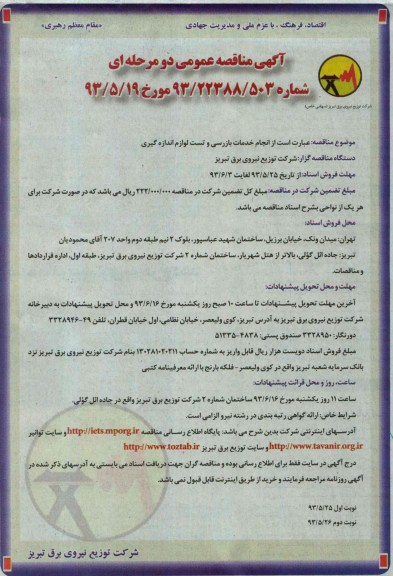 «اقتصاد، فرهنگ، با عزم ملی و مدیریت جهادی
«مقام معظم رهبری»
آگهی مناقصه عمومی دو مرحله ای
شماره ۹۳/۲۲۳۸۸/۵۰۳ مورخ ۹۳/۵/۱۹
شرکت توزیع نیروی برق تبریز (سهامی خاص)
موضوع مناقصه: عبارت است از انجام خدمات بازرسی و تست لوازم اندازه گیری
دستگاه مناقصه گزار: شرکت توزیع نیروی برق تبریز
مهلت فروش اسناد: از تاریخ ۹۳/۵/۲۵ لغایت ۹۳/۶/۳
مبلغ تضمین شرکت در مناقصه: مبلغ کل تضمین شرکت در مناقصه ۲۲۲/۰۰۰/۰۰۰ ریال می باشد که در صورت شرکت برای
هر یک از نواحی بشرح اسناد مناقصه می باشد.
محل فروش اسناد:
تهران: میدان ونک، خیابان برزیل، ساختمان شهید عباسپور، بلوک ۲ نیم طبقه دوم واحد ۲۰۷ آقای محمودیان
تبریز: جاده ائل گؤلی، بالاتر از هتل شهریار، ساختمان شماره ۲ شرکت توزیع نیروی برق تبریز، طبقه اول، اداره قراردادها
و مناقصات.
مهلت و محل تحویل پیشنهادات:
آخرین مهلت تحویل پیشنهادات تا ساعت ۱۰ صبح روز یکشنبه مورخ ۹۳/۶/۱۶ و محل تحویل پیشنهادات به دبیرخانه
شرکت توزیع نیروی برق تبریز به آدرس تبریز، کوی ولیعصر، خیابان نظامی، اول خیابان قطران، تلفن ۴۹-۳۳۲۸۹۴۶
دورنگار: ۳۳۲۸۹۵۰ صندوق پستی: ۴۸۳۸-۵۱۳۳۵
مبلغ فروش اسناد دویست هزار ریال قابل واریز به شماره حساب ۱۳۰۲۸۱۰۲۰۲۱۱ بنام شرکت توزیع نیروی برق تبریز نزد
بانک سرمایه شعبه تبریز واقع در کوی ولیعصر - فلکه بارنج با ارائه معرفینامه کتبی
ساعت، روز و محل قرائت پیشنهادات:
ساعت ۱۱ روز یکشنبه مورخ ۹۳/۶/۱۶ ساختمان شماره ۲ شرکت توزیع برق تبریز واقع در جاده ائل گؤلی.
شرایط خاص: ارائه گواهی رتبه بندی در رشته نیرو الزامی است.
آدرسهای اینترنتی شرکت بدین شرح می باشد: پایگاه اطلاع رسانی مناقصه http://iets.mporg.ir و سایت توانیر
http://www.tavanir.org.ir و سایت توزیع برق تبریز http://www.toztab.ir
درج آگهی در سایت فقط برای اطلاع رسانی بوده و مناقصه گران جهت دریافت اسناد می بایستی به آدرسهای ذکر شده در
آگهی روزنامه مراجعه فرمایند و خرید از طریق اینترنت قابل قبول نمی باشد.
نوبت اول ۹۳/۵/۲۵
نوبت دوم ۹۳/۵/۲۶
شرکت توزیع نیروی برق تبریز